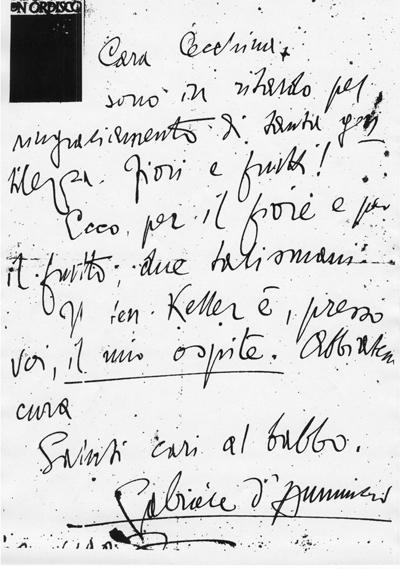 ON ORDISCO
Cara Cecchina,
sono in ritardo pel
ringraziamento di tanta gen
tilezza. Fiori e frutti!
Ecco, per il fiore e per
il frutto, due talismani.
Il ten Keller è, presso
voi, il mio ospite. Abbiatene
cura
Saluti cari al babbo.
Gabriele d'Annunzio